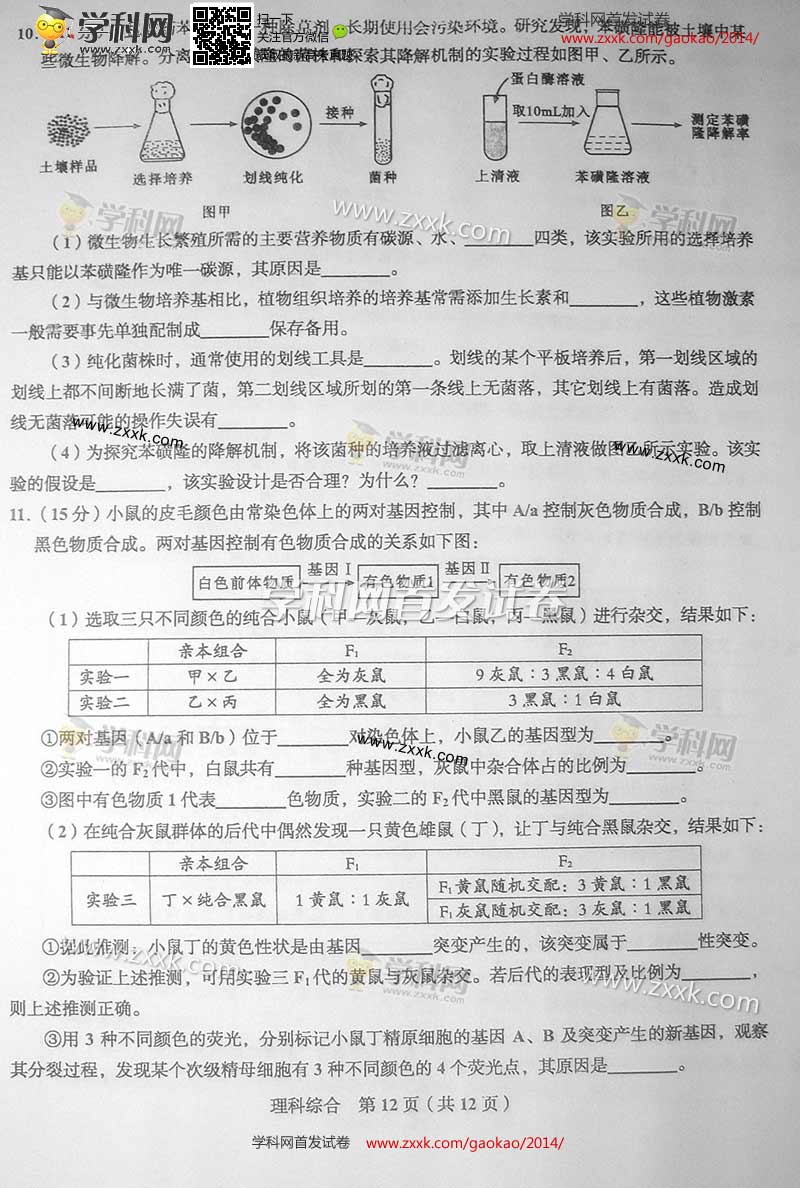 学科网首发试卷
www.zxxk.com/gaokao/2014/
学科网
扫一下
关注官方微信
10.
除草剂，长期使用会污染环境。研究发现，苯磺隆能被土壤中某
些微生物降解。分离
菌株和探索其降解机制的实验过程如图甲、乙所示。
土壤样品
选择培养
划线纯化
接种
菌种
图甲
蛋白酶溶液
取10mL加入
上清液
苯磺隆溶液
测定苯磺
隆降解率
图乙
学科网
www.zxxk.com
（1）微生物生长繁殖所需的主要营养物质有碳源、水、________四类，该实验所用的选择培养
基只能以苯磺隆作为唯一碳源，其原因是________。
（2）与微生物培养基相比，植物组织培养的培养基常需添加生长素和________，这些植物激素
一般需要事先单独配制成________保存备用。
（3）纯化菌株时，通常使用的划线工具是________。划线的某个平板培养后，第一划线区域的
划线上都不间断地长满了菌，第二划线区域所划的第一条线上无菌落，其它划线上有菌落。造成划
线无菌落可能的操作失误有________。
www.zxxk.com
学科网
www.zxxk.com
（4）为探究苯磺隆的降解机制，将该菌种的培养液过滤离心，取上清液做图乙所示实验。该实
验的假设是________，该实验设计是否合理？为什么？________。
11.（15分）小鼠的皮毛颜色由常染色体上的两对基因控制，其中A/a控制灰色物质合成，B/b控制
黑色物质合成。两对基因控制有色物质合成的关系如下图：
白色前体物质 基因Ⅰ 有色物质1 基因Ⅱ 有色物质2
学科网首发试卷
（1）选取三只不同颜色的纯合小鼠（甲—灰鼠，乙—白鼠，丙—黑鼠）进行杂交，结果如下：
亲本组合 F₁ F₂
实验一 甲×乙 全为灰鼠 9灰鼠：3黑鼠：4白鼠
实验二 乙×丙 全为黑鼠 3黑鼠：1白鼠
①两对基因（A/a和B/b）位于________对染色体上，小鼠乙的基因型为________。
学科网
www.zxxk.com
学科网
②实验一的F₂代中，白鼠共有________种基因型，灰鼠中杂合体占的比例为________。
③图中有色物质1代表________色物质，实验二的F₂代中黑鼠的基因型为________。
（2）在纯合灰鼠群体的后代中偶然发现一只黄色雄鼠（丁），让丁与纯合黑鼠杂交，结果如下：
亲本组合 F₁ F₂
实验三 丁×纯合黑鼠 1黄鼠：1灰鼠 F₁黄鼠随机交配：3黄鼠：1黑鼠
F₁灰鼠随机交配：3灰鼠：1黑鼠
①据此推测：小鼠丁的黄色性状是由基因________突变产生的，该突变属于________性突变。
www.zxxk.com
学科网
www.zxxk.com
②为验证上述推测，可用实验三F₁代的黄鼠与灰鼠杂交。若后代的表现型及比例为________，
则上述推测正确。
③用3种不同颜色的荧光，分别标记小鼠丁精原细胞的基因A、B及突变产生的新基因，观察
其分裂过程，发现某个次级精母细胞有3种不同颜色的4个荧光点，其原因是________。
理科综合 第12页（共12页）
学科网首发试卷 www.zxxk.com/gaokao/2014/